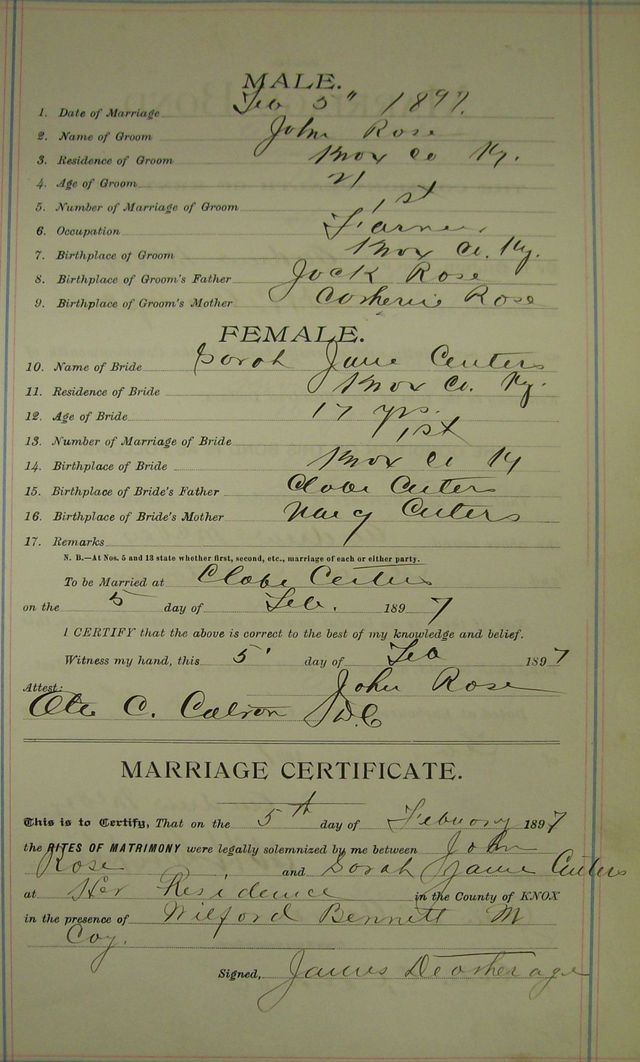 MALE.
1. Date of Marriage Feb 5" 1897.
2. Name of Groom John Rose
3. Residence of Groom Knox Co Ky.
4. Age of Groom 21
5. Number of Marriage of Groom 1st
6. Occupation Farmer
7. Birthplace of Groom Knox Co. Ky.
8. Birthplace of Groom's Father Jack Rose
9. Birthplace of Groom's Mother Rose
FEMALE.
10. Name of Bride Sarah Jane Centers
11. Residence of Bride Knox Co. Ky.
12. Age of Bride 17 yrs.
13. Number of Marriage of Bride 1st
14. Birthplace of Bride Knox Co Ky
15. Birthplace of Bride's Father Centers
16. Birthplace of Bride's Mother Nancy Centers
17. Remarks
N. B.—At Nos. 5 and 13 state whether first, second, etc., marriage of each or either party.
To be Married at Centers
on the 5 day of Feb. 1897
I CERTIFY that the above is correct to the best of my knowledge and belief.
Witness my hand, this 5 day of Feb 1897
Attest: John Rose
C. D.C
MARRIAGE CERTIFICATE.
This is to Certify, That on the 5th day of February 1897
the RITES OF MATRIMONY were legally solemnized by me between John
Rose and Sarah Jane Centers
at Her Residence in the County of KNOX
in the presence of Wilford Bennett M
Coy.
Signed, James